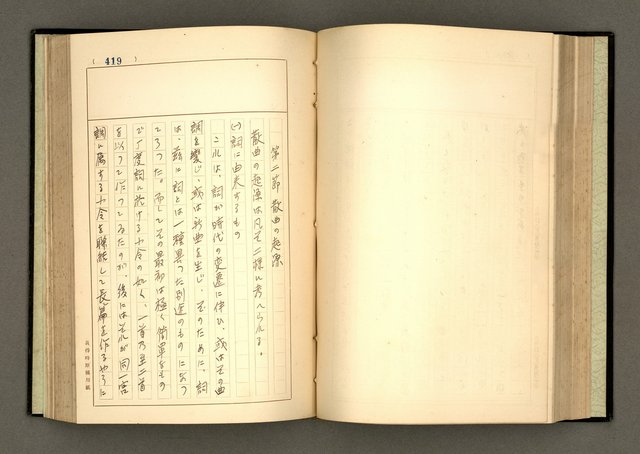 ( 419 )
第二節 散曲の起源
散曲の起源は凡そ二様に考へられる。
(一)詞に由来するもの
これは、詞が時代の変遷に伴ひ、或はその曲
調を変じ、或は新曲を生じ、そのために、詞
は、茲に詞とは一種異つた別途のものになつ
てゐつた。而してその最初は極く簡単なもの
で丁度詞に於ける小令の如く、一首乃至二首
を以つて作つてゐたのが、後にはそれが同一宮
調に属する小令を聯続して長篇を作るやうに
原稿用紙